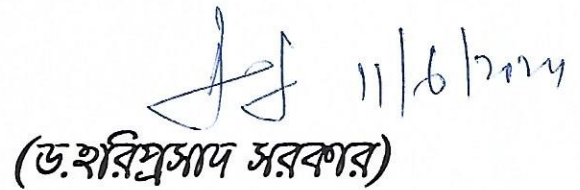 11/6/2024
(ড.হরিপ্রসাদ সরকার)